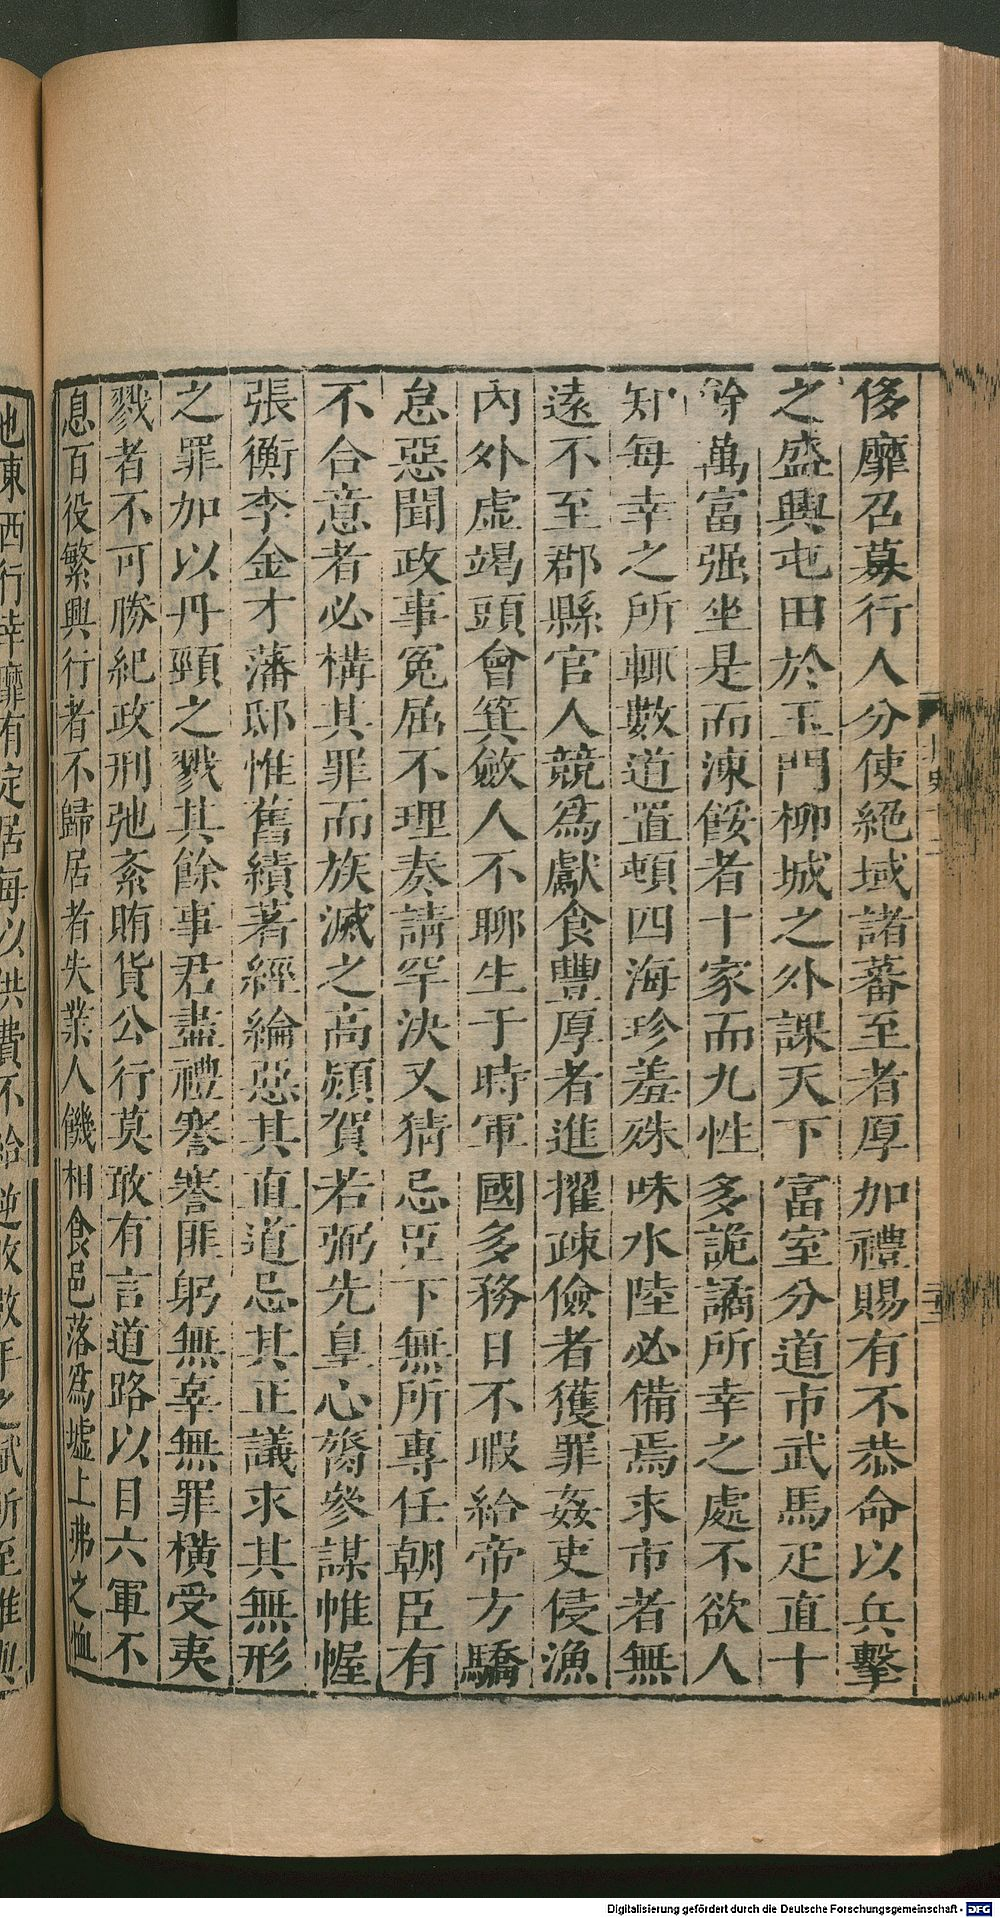 侈靡召募行人分使絕域諸蕃至者厚加禮賜有不恭命以兵擊
之盛興屯田於玉門柳城之外課天下富室分道市武馬疋直十
餘萬富强坐是而凍餒者十家而九性多詭譎所幸之處不欲人
知每幸之所輒數道置頓四海珍羞殊味水陸必備焉求市者無
遠不至郡縣官人競爲獻食豐厚者進擢疎儉者獲罪姦吏侵漁
內外虛竭頭會箕斂人不聊生于時軍國多務日不暇給帝方驕
怠惡聞政事冤屈不理奏請罕決又猜忌臣下無所專任朝臣有
不合意者必構其罪而族滅之高熲賀若弼先皇心膂參謀帷幄
張衡李金才藩邸惟舊績著經綸惡其直道忌其正議求其無形
之罪加以丹頸之戮其餘事君盡禮謇謇匪躬無辜無罪橫受夷
戮者不可勝紀政刑弛紊賄貨公行莫敢有言道路以目六軍不
息百役繁興行者不歸居者失業人饑相食邑落爲墟上弗之恤
也東西行幸靡有定居每以供費不給逆收數年之賦所至惟與
Digitalisierung gefördert durch die Deutsche Forschungsgemeinschaft - DFG